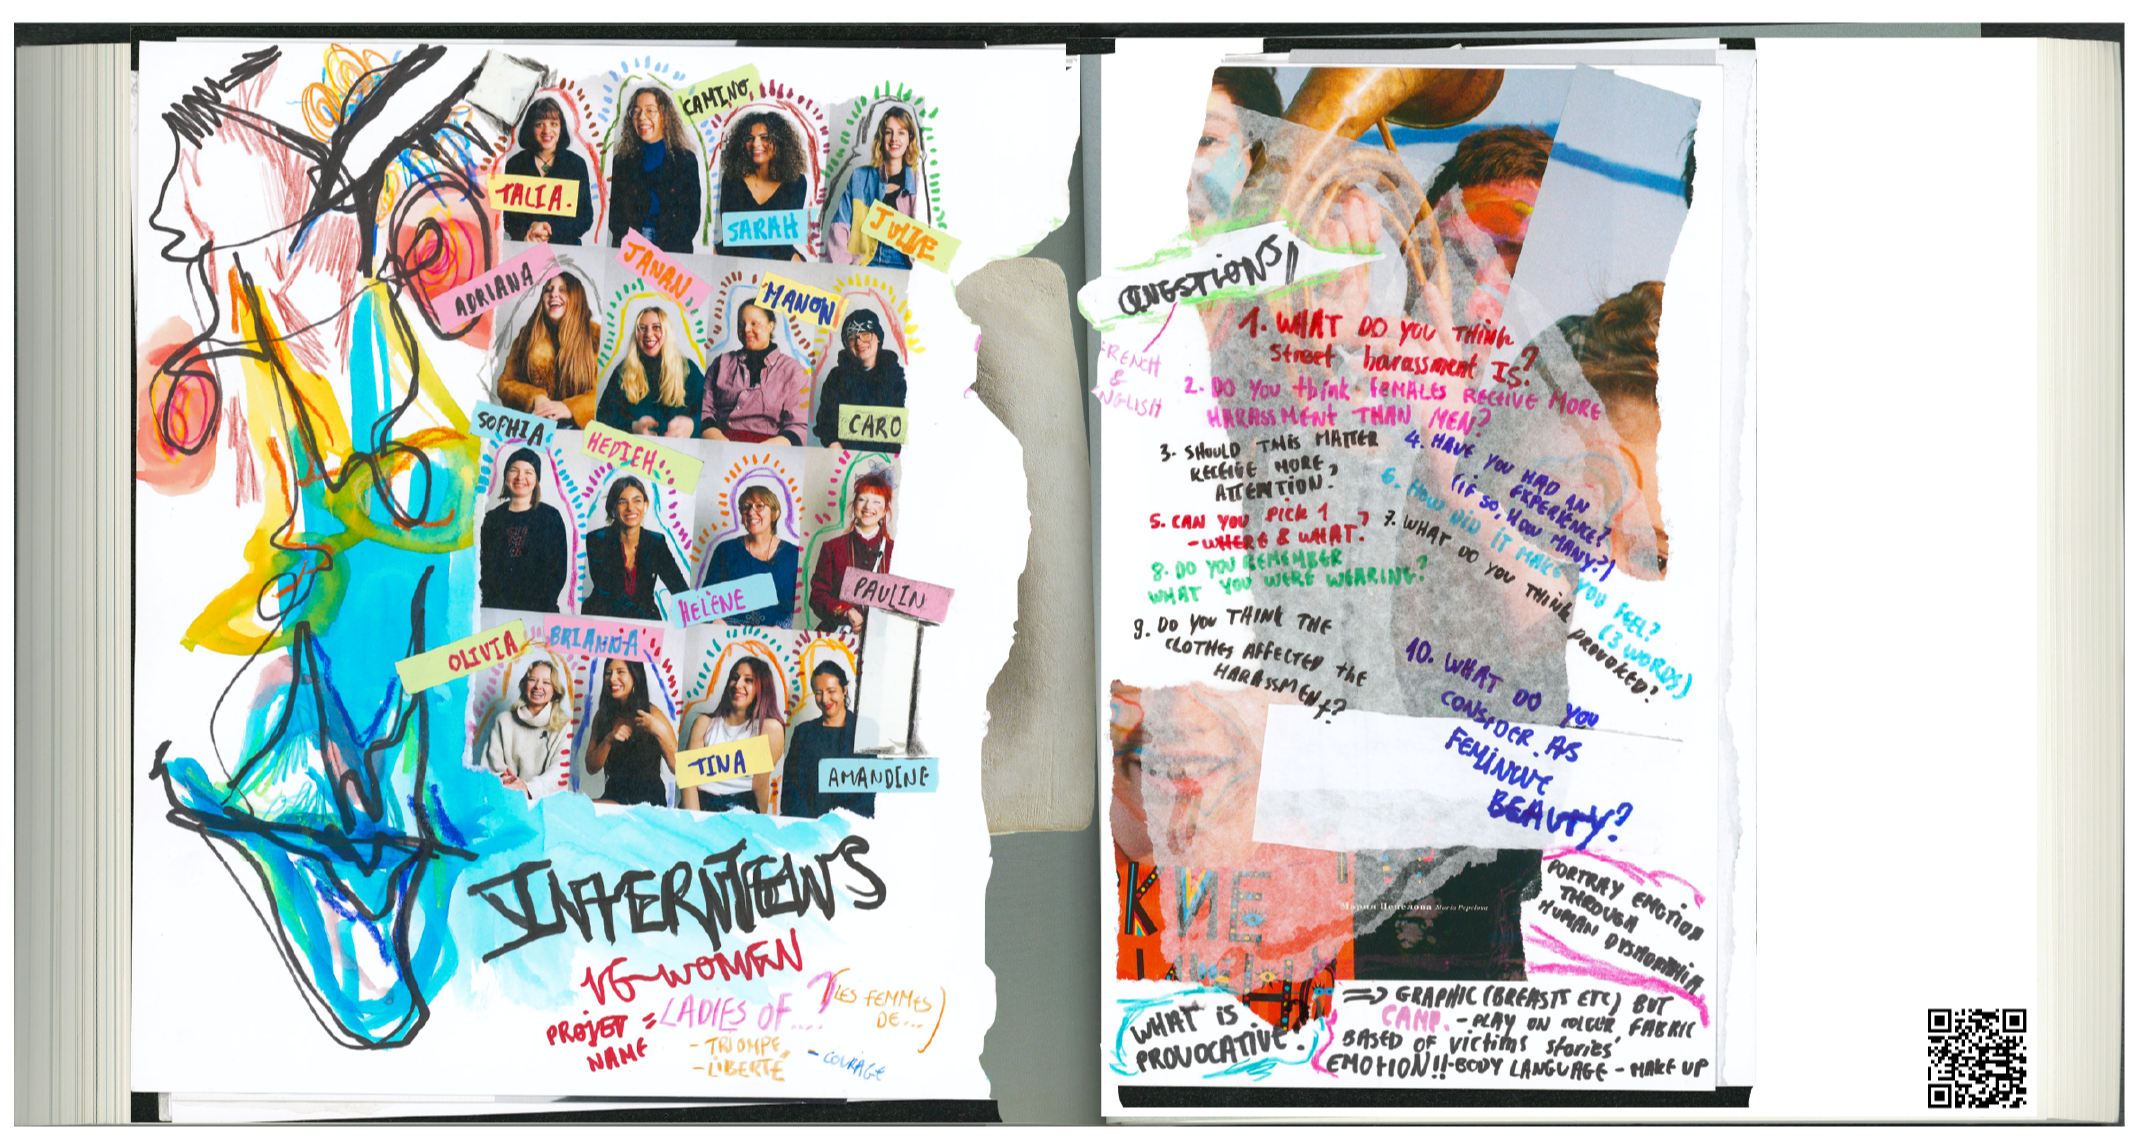 CAMINO
TALIA.
SARAH
JULIE
ADRIANA
JANAN
MANON
SOPHIA
HEDIEH
CARO
HELÈNE
PAULIN
OLIVIA
BRIANNA
TINA
AMANDINE
INTERVIEWS
16 WOMEN
PROJET NAME = LADIES OF....? (LES FEMMES DE...)
- TRIOMPE
- LIBERTÉ
- COURAGE
QUESTIONS
FRENCH
&
ENGLISH
1. WHAT DO YOU THINK
Street harassment IS?
2. DO YOU think FEMALES RECEIVE MORE
HARASSMENT THAN MEN?
3. SHOULD THIS MATTER
RECEIVE MORE
ATTENTION.
4. HAVE YOU HAD AN
EXPERIENCE?
(IF SO, HOW MANY?)
5. CAN YOU PICK 1
- WHERE & WHAT.?
6. HOW DID IT MAKE YOU FEEL?
(3 WORDS)
7. WHAT DO YOU THINK PROVOKED?
8. DO YOU REMEMBER
WHAT YOU WERE WEARING?
9. DO YOU THINK THE
CLOTHES AFFECTED the
HARASSMENT?
10. WHAT DO YOU
CONSIDER AS
FEMININE
BEAUTY?
КИЕ
Мария Пепелова Maria Pepelova
PORTRAY EMOTION
THROUGH
HUMAN DYSMORPHIA
WHAT IS
PROVOCATIVE.
=> GRAPHIC (BREASTS ETC) BUT
CAMP. - PLAY ON COLOUR FABRIC
BASED OF victims stories'
EMOTION!! - BODY LANGUAGE - MAKE UP